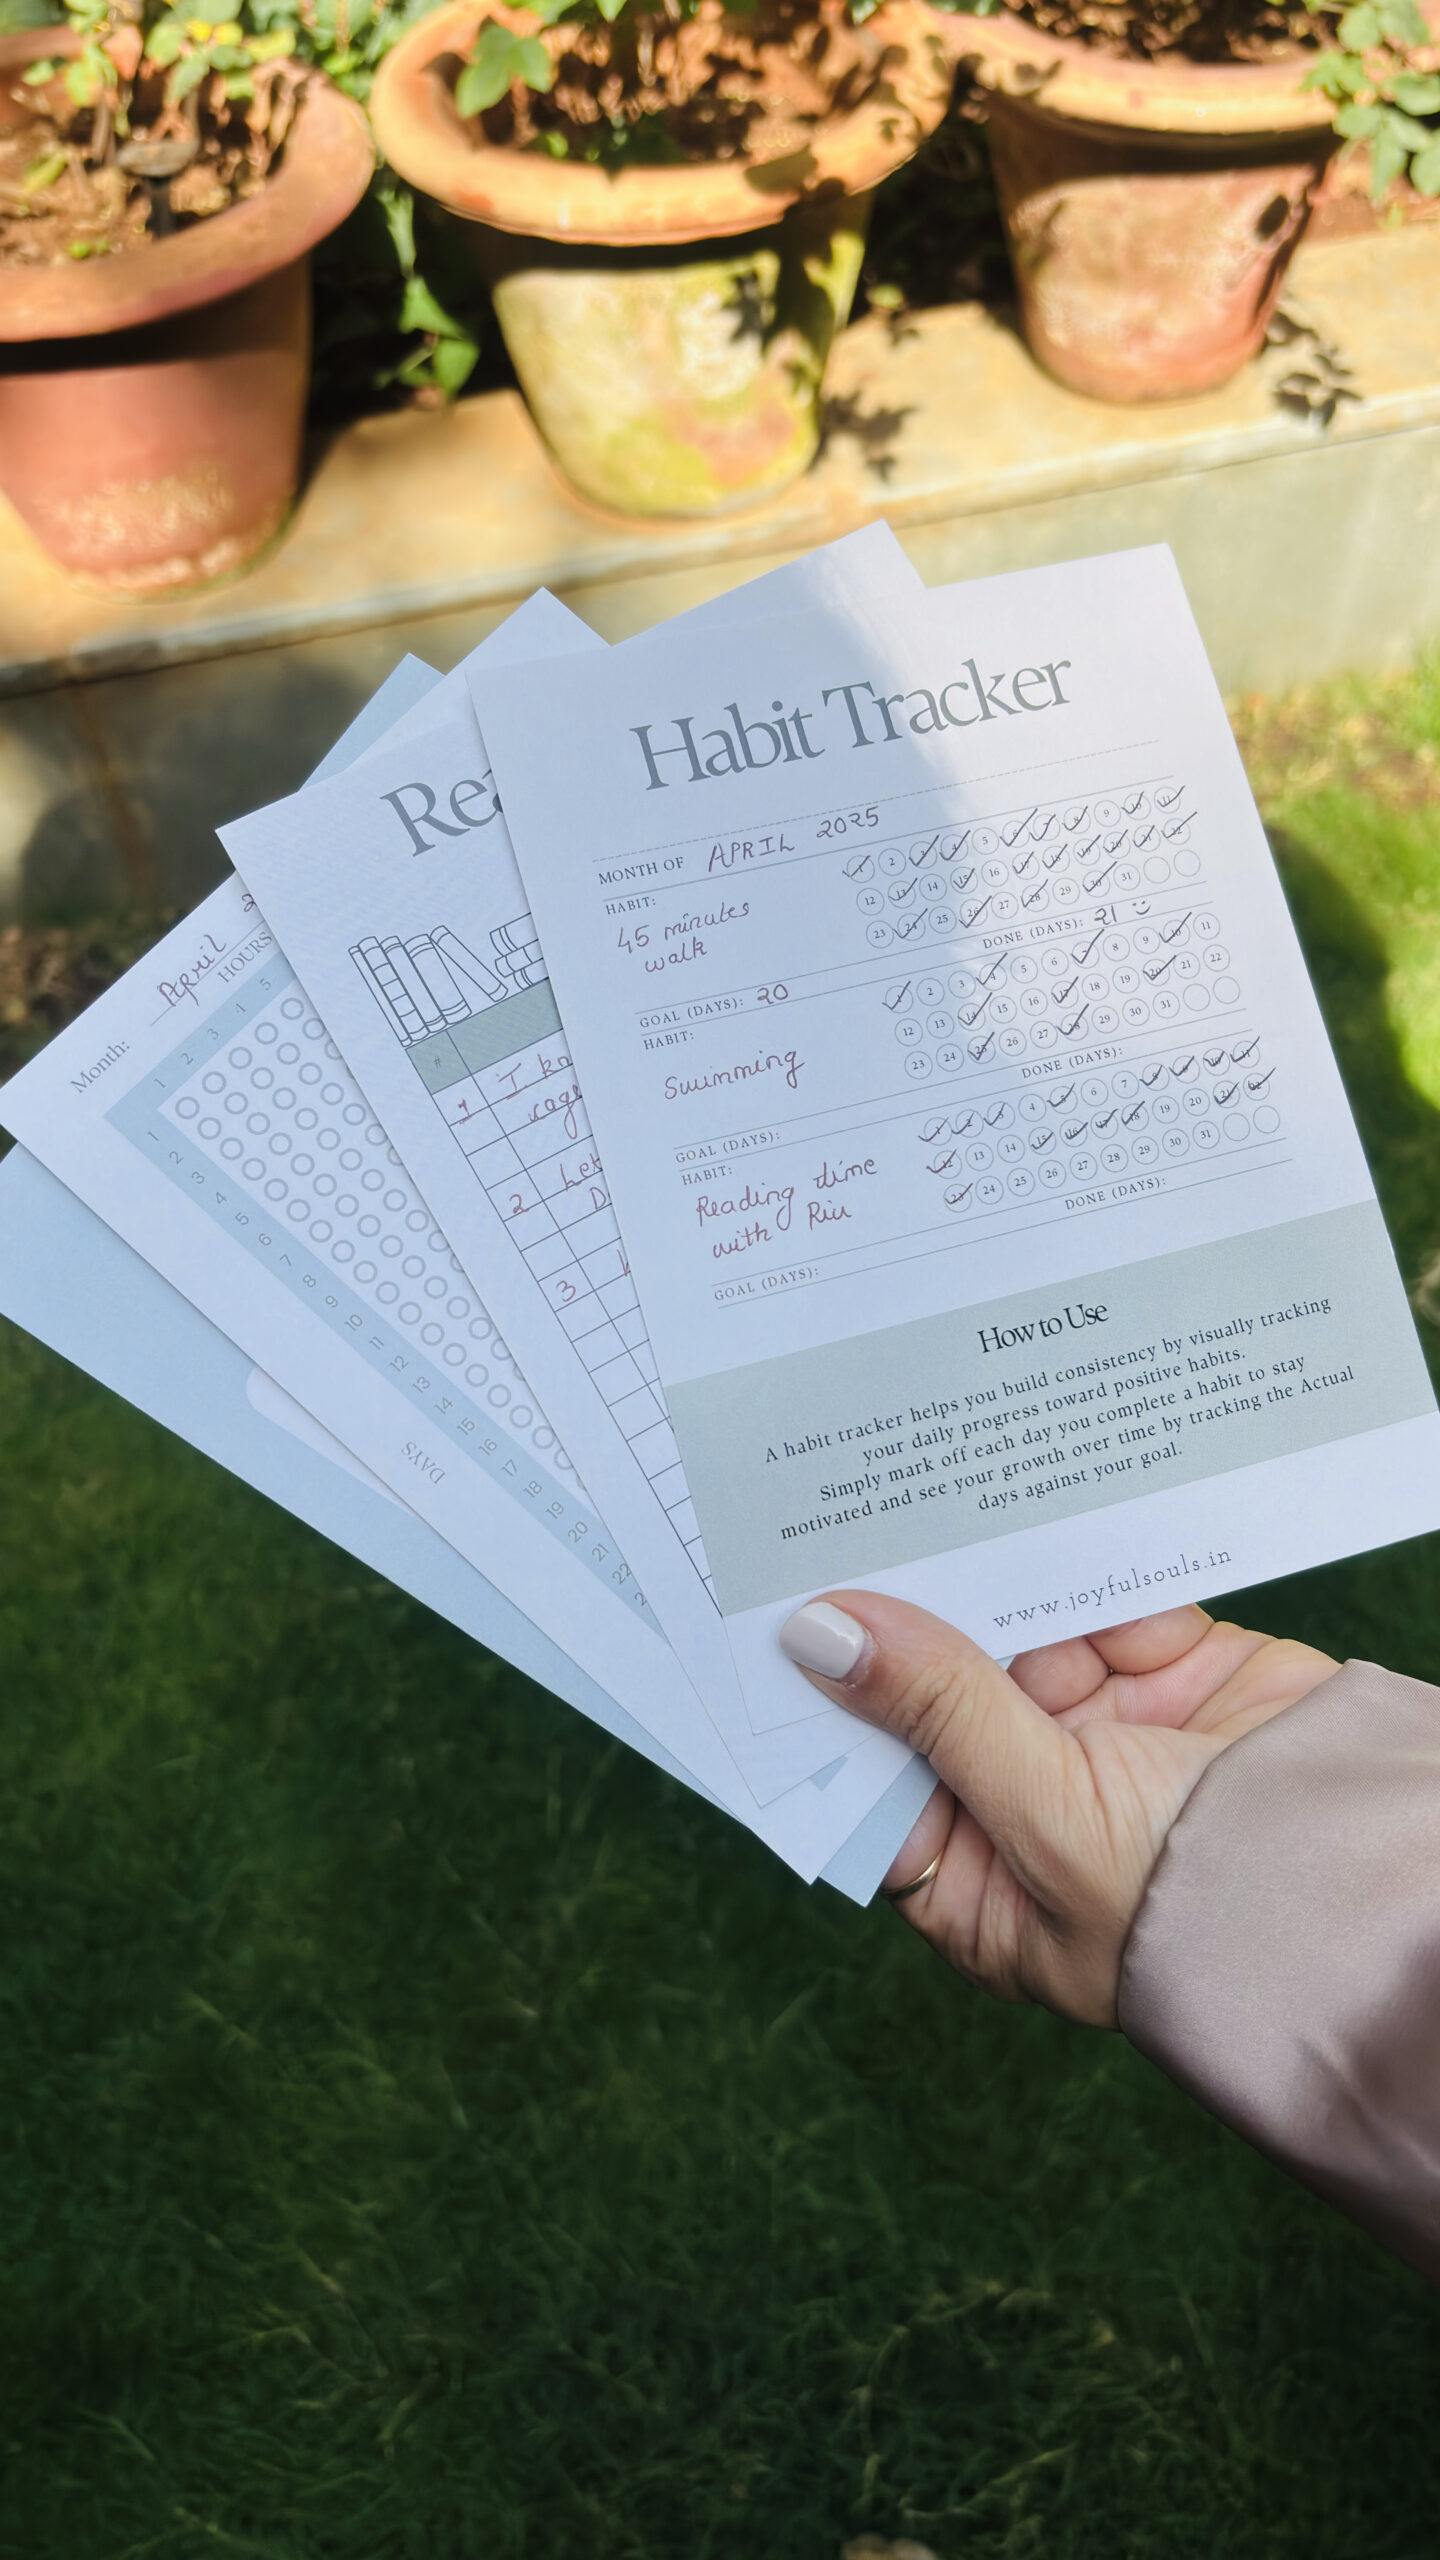 Habit Tracker
MONTH OF APRIL 2025
HABIT:
45 minutes
walk
1 2 3 4 5 6 7 8 9 10 11
12 13 14 15 16 17 18 19 20 21 22
23 24 25 26 27 28 29 30 31
GOAL (DAYS): 20
DONE (DAYS): 21
HABIT:
Swimming
1 2 3 4 5 6 7 8 9 10 11
12 13 14 15 16 17 18 19 20 21 22
23 24 25 26 27 28 29 30 31
GOAL (DAYS):
DONE (DAYS):
HABIT:
Reading time
with
1 2 3 4 5 6 7 8 9 10 11
12 13 14 15 16 17 18 19 20 21 22
23 24 25 26 27 28 29 30 31
GOAL (DAYS):
DONE (DAYS):
How to Use
A habit tracker helps you build consistency by visually tracking
your daily progress toward positive habits.
Simply mark off each day you complete a habit to stay
motivated and see your growth over time by tracking the Actual
days against your goal.
www.joyfulsouls.in
Rea
#
1 I kn
cage
2 Let
D
3
Month: April 2
HOURS
1 2 3 4 5
1
2
3
4
5
6
7
8
9
10
11
12
13
14
15
16
17
18
19
20
21
22
2
DAYS